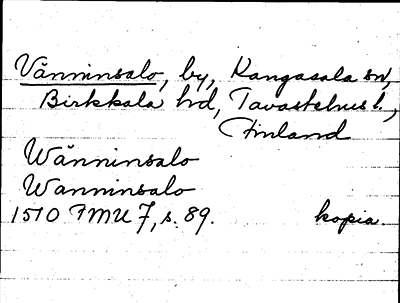 Vänninsalo, by, Kangasala sn,
Birkkala hd, Tavastehus l.,
Finland
Wänninsalo
Wanninsalo
1510 FMU 7, s. 89. kopia